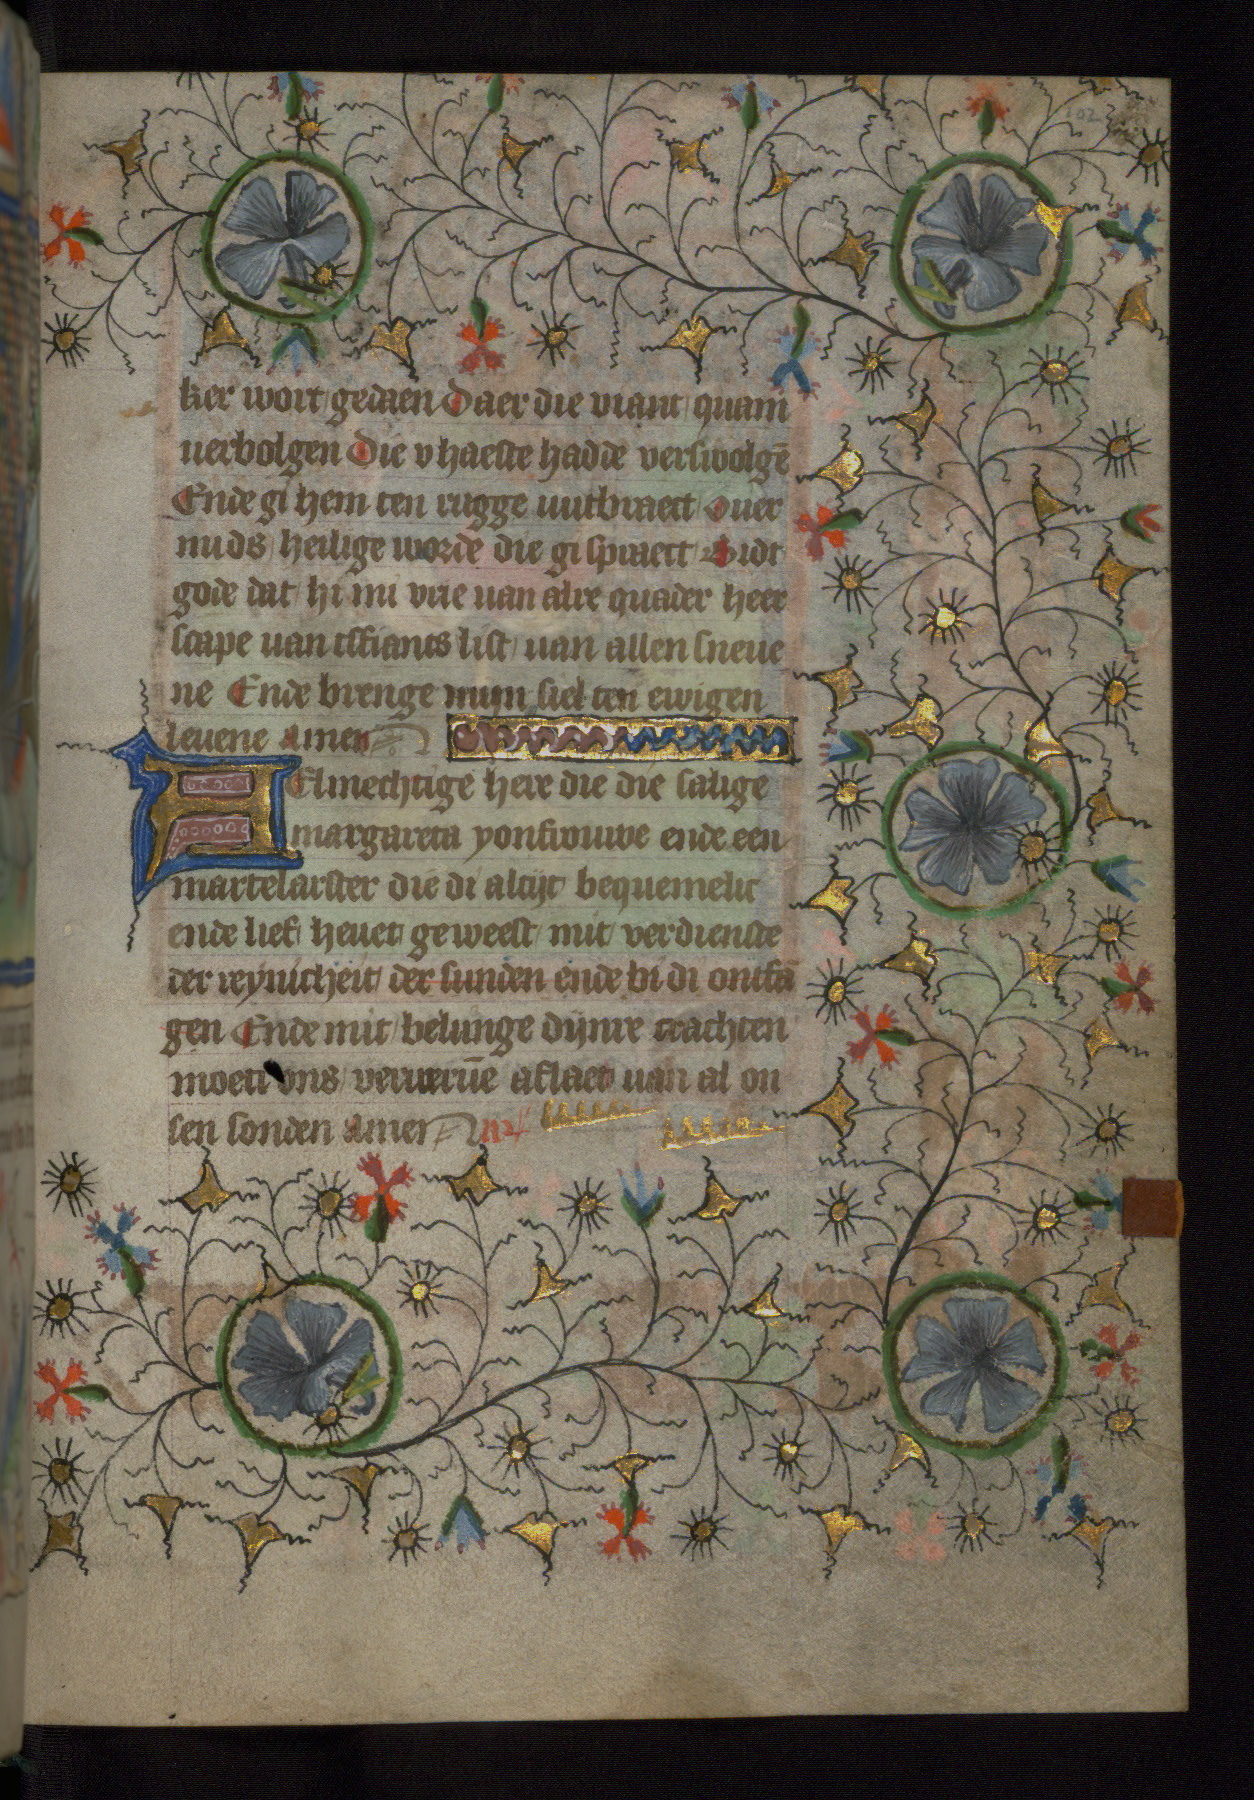 102
ker wort gedaen Daer die viant quam
verbolgen Die v haeste hadde verswolgē
Ende gi hem ten rugge uutbraect Ouer
mids heilige worde die gi spraect Bidt
gode dat hi mi vrie van alre quader heer
scape van tsfiants list van allen sneue
ne Ende brenge mijn siel ten ewigen
leuene Amen
Almechtige here die die salige
margareta yonfrouwe ende een
martelarster die di altijt bequemelic
ende lief heuet geweest mit verdienste
der reynicheit der sunden ende bi di ontfā
gen Ende mit belunge dijnre crachten
moeti ons verweruē aflaet van al on
sen sonden Amen